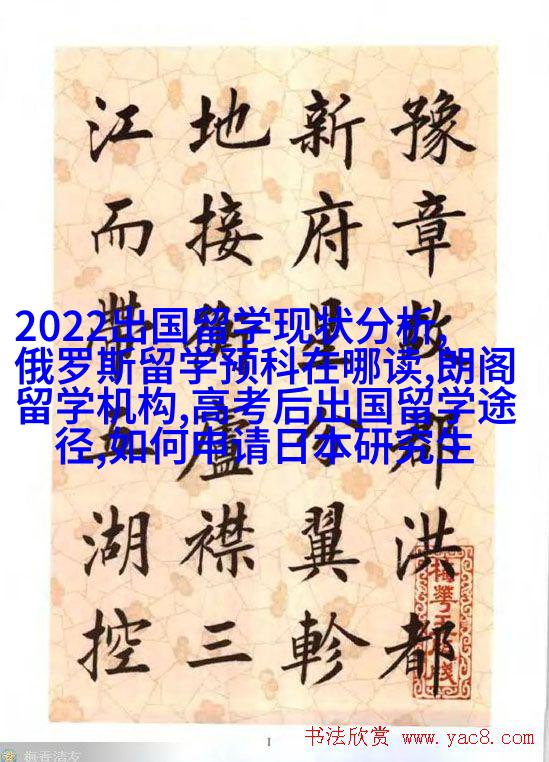 豫章故都洪都
新府星分翼軫
地接衡廬襟三
江而帶五湖控
2022出国留学现状分析,
俄罗斯留学预科在哪读,朗阁
留学机构,高考后出国留学途
径,如何申请日本研究生
1
书法欣赏 www.yac8.com